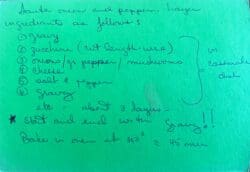 Saute onion and pepper, layer
ingredients as follows
① gravy
② zucchini (cut length-wise)
③ onions/gr pepper/mushrooms
④ cheese
⑤ salt & pepper
⑥ gravy
in
casserole
dish
etc - about 3 layers -
* Start and end with gravy!!
Bake in oven at 350° ≈ 45 min